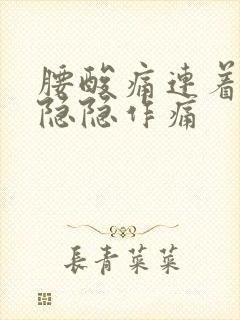 腰酸痛連着
隐隐作痛
長青菜菜